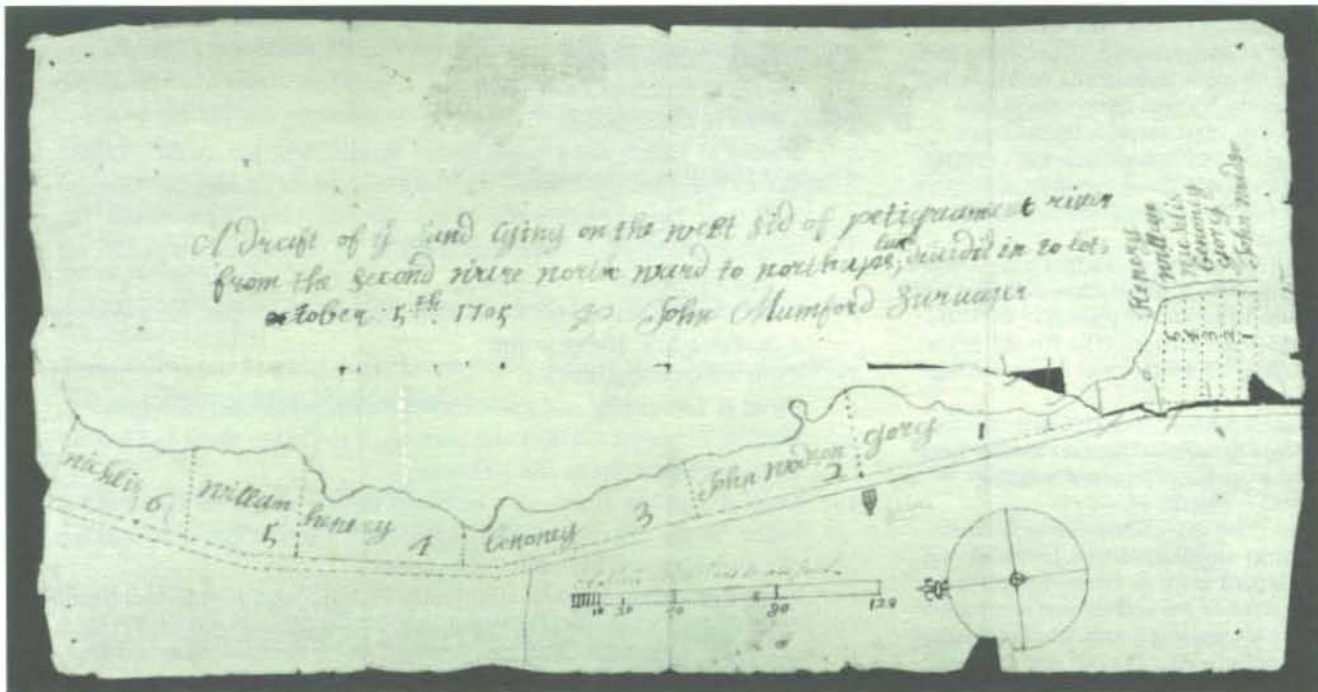 A Draft of ye Land Lying on the west Sid of petiquament river
from the Second wire north ward to northups divided in to lots
october 5th 1705 John Mumford Survaier
Henery
William
Nicklis
benomey
Gorg
John
6
5
4
3
2
1
nicklis 6
william 5
henery 4
benomey 3
John 2
Gorg 1
10 20 40 80 120